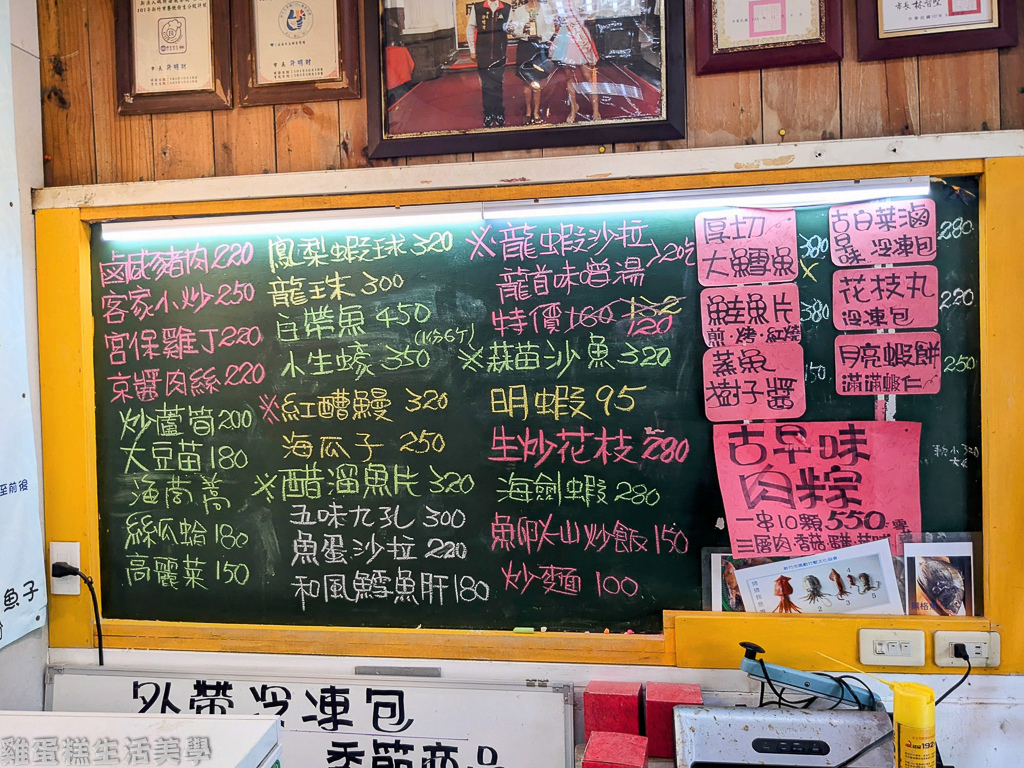 市長 許明財
市長 許明財
市長 林智堅
鹵咸豬肉 220
客家小炒 250
宮保雞丁 220
京醬肉絲 220
炒蘆筍 200
大豆苗 180
絲瓜蛤 180
高麗菜 150
鳳梨蝦球 320
龍珠 300
白帶魚 450
(1份6片)
小生蠔 350
※紅糟鰻 320
海瓜子 250
※醋溜魚片 320
五味九孔 300
魚蛋沙拉 220
和風鱈魚肝 180
※龍蝦沙拉
龍首味噌湯
特價 120
※蒜苗沙魚 320
明蝦 95
生炒花枝 280
海劍蝦 280
魚卵火山炒飯 150
炒麵 100
厚切
大鱈魚
380
鮭魚片
煎·烤·紅燒
380
蒸魚
樹子醬
古早味 白菜滷
冷凍包
280
花枝丸
冷凍包
220
月亮蝦餅
滿滿蝦仁
250
古早味
肉粽
一串10顆 550
至前後
魚子
外帶冷凍包
季節商品
雞蛋糕生活美學